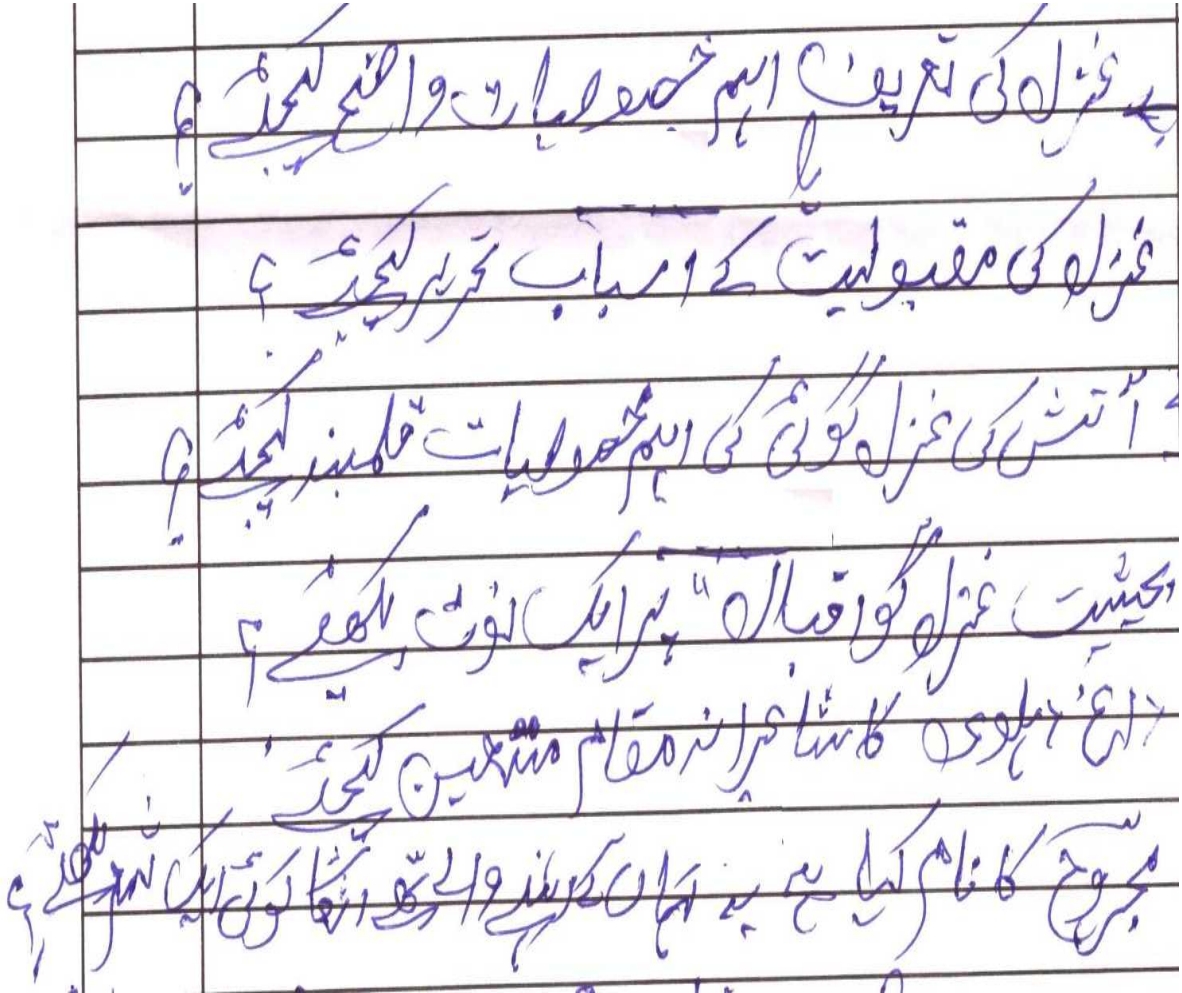 غزل کی تعریف اہم خصوصیات واضح کیجئے ؟
یا
غزل کی مقبولیت کے اسباب تحریر کیجئے ؟
آتش کی غزل گوئی کی اہم خصوصیات قلمبند کیجئے ؟
بحیثیت غزل گو اقبال" پر ایک نوٹ لکھئے ؟
داغ دہلوی کا شاعرانہ مقام متعین کیجئے
مجروح کا نام کیا ہے یہ کہاں کے رہنے والے تھے انکا کوئی ایک شعر لکھئے ؟